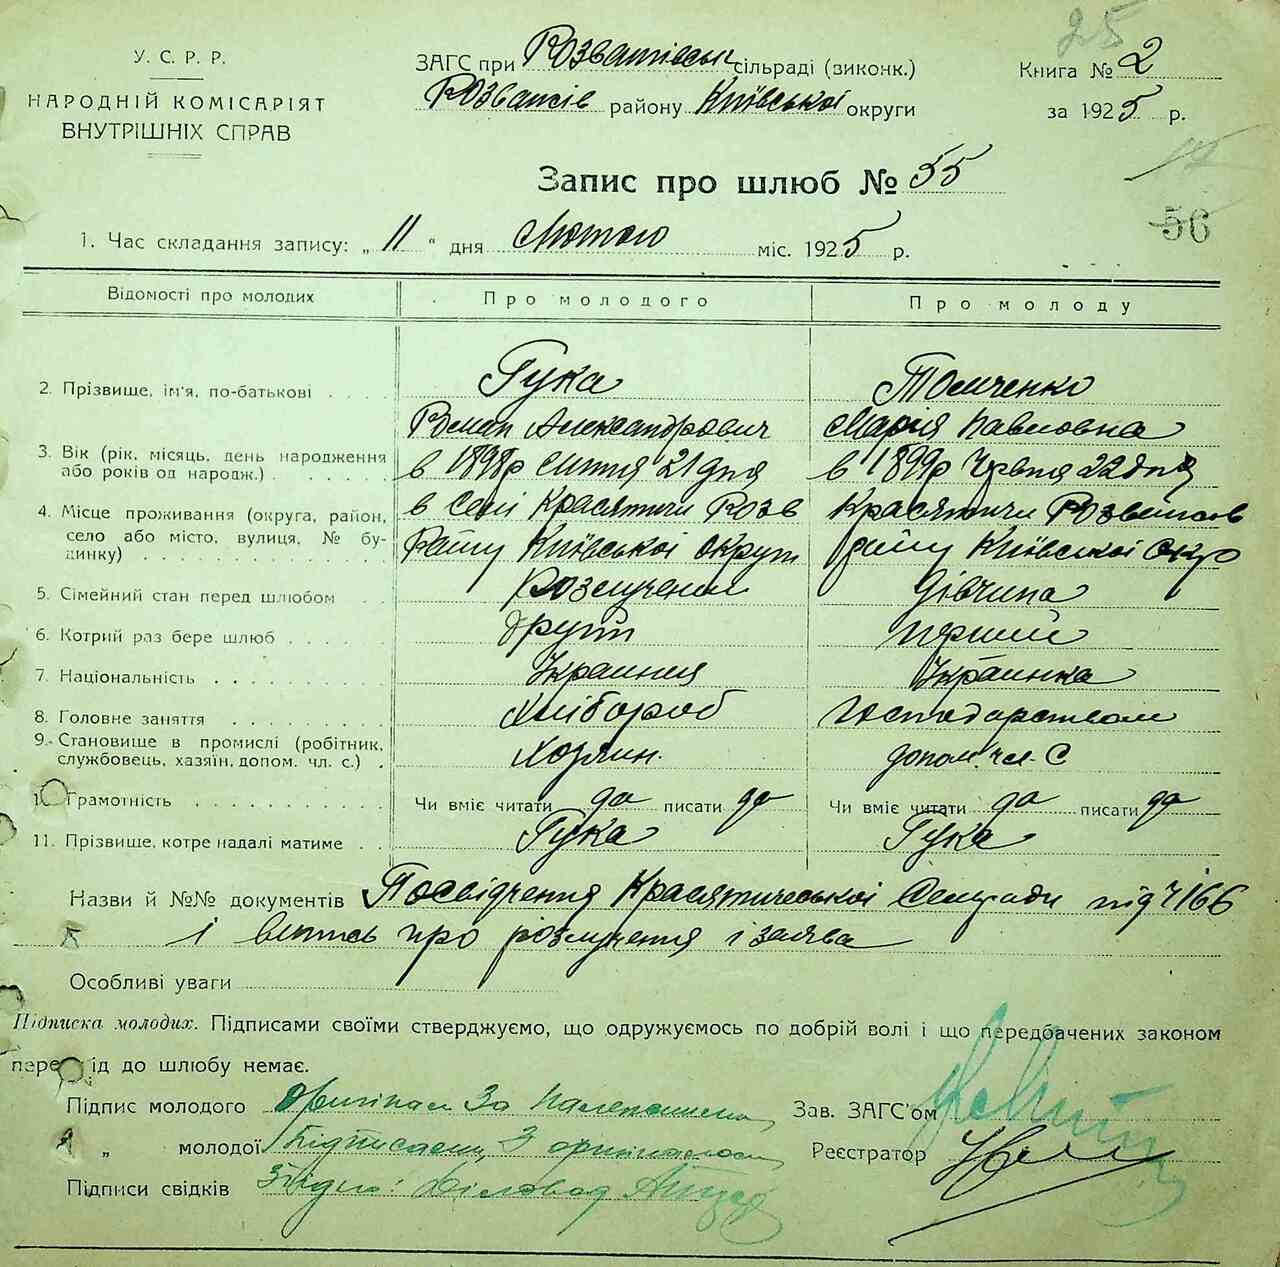 25
У. С. Р. Р.
НАРОДНІЙ КОМІСАРІЯТ
ВНУТРІШНІХ СПРАВ
ЗАГС при Розважівськ сільраді (виконк.)
Розважів району Київської округи
Книга № 2
за 1925 р.
17
Запис про шлюб № 55
56
1. Час складання запису: „ 11 " дня Лютого міс. 1925 р.
Відомості про молодих Про молодого Про молоду
2. Прізвище, ім'я, по-батькові Гука Томченко
Роман Александрович Марія Павловна
3. Вік (рік, місяць, день народження або років од народж.) в 1898р 21 дня в 1899р Червня 22 дня
4. Місце проживання (округа, район, село або місто, вулиця, № будинку) в селі Красятичи Розв Красятичи Розважів
Району Київської округи району Київської Окр
5. Сімейний стан перед шлюбом Розлучений Дівчина
6. Котрий раз бере шлюб другий перший
7. Національність Українця Українка
8. Головне заняття Хлібороб Господарством
9. Становище в промислі (робітник, службовець, хазяїн, допом. чл. с.) Хозяин. допом. чл. С
10. Грамотність Чи вміє читати да писати да Чи вміє читати да писати да
11. Прізвище, котре надалі матиме Гука Гука
Назви й №№ документів Посвідчення Красятической Сельради під Ч 166
і випись про розлучення і заява
Особливі уваги
Підписка молодих. Підписами своїми стверджуємо, що одружуємось по добрій волі і що передбачених законом
перешкід до шлюбу немає.
Підпис молодого Оригінал За належними
„ молодої Підписами, З оригіналом
Підписи свідків Згідно: Діловод
Зав. ЗАГС'ом
Реєстратор